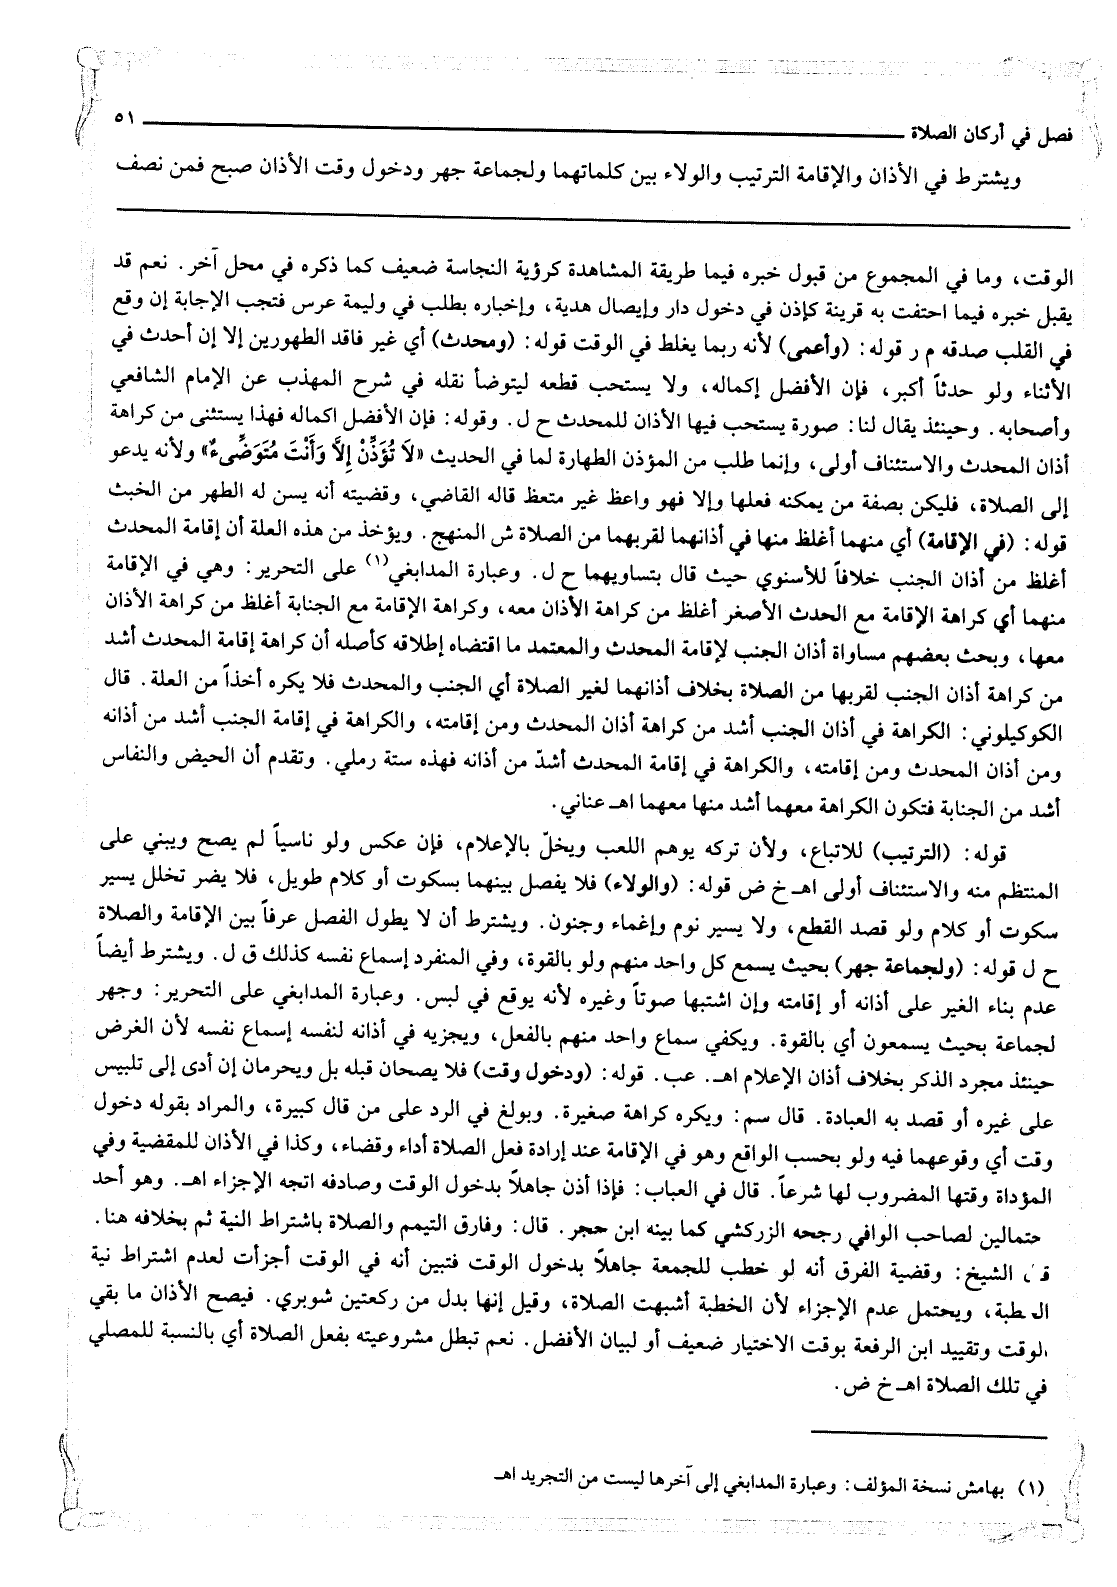 فصل في أركان الصلاة ٥١
ويشترط في الأذان والإقامة الترتيب والولاء بين كلماتهما ولجماعة جهر ودخول وقت الأذان صبح فمن نصف
الوقت، وما في المجموع من قبول خبره فيما طريقة المشاهدة كرؤية النجاسة ضعيف كما ذكره في محل آخر. نعم قد
يقبل خبره فيما احتفت به قرينة كإذن في دخول دار وإيصال هدية، وإخباره بطلب في وليمة عرس فتجب الإجابة إن وقع
في القلب صدقه م ر قوله: (وأعمى) لأنه ربما يغلط في الوقت قوله: (ومحدث) أي غير فاقد الطهورين إلا إن أحدث في
الأثناء ولو حدثاً أكبر، فإن الأفضل إكماله، ولا يستحب قطعه ليتوضأ نقله في شرح المهذب عن الإمام الشافعي
وأصحابه. وحينئذ يقال لنا: صورة يستحب فيها الأذان للمحدث ح ل. وقوله: فإن الأفضل اكماله فهذا يستثنى من كراهة
أذان المحدث والاستئناف أولى، وإنما طلب من المؤذن الطهارة لما في الحديث «لاَ تُؤَذِّنْ إِلاَّ وَأَنْتَ مُتَوَضِّىءٌ» ولأنه يدعو
إلى الصلاة، فليكن بصفة من يمكنه فعلها وإلا فهو واعظ غير متعظ قاله القاضي، وقضيته أنه يسن له الطهر من الخبث
قوله: (في الإقامة) أي منهما أغلظ منها في أذانهما لقربهما من الصلاة ش المنهج. ويؤخذ من هذه العلة أن إقامة المحدث
أغلظ من أذان الجنب خلافاً للأسنوي حيث قال بتساويهما ح ل. وعبارة المدابغي(١) على التحرير: وهي في الإقامة
منهما أي كراهة الإقامة مع الحدث الأصغر أغلظ من كراهة الأذان معه، وكراهة الإقامة مع الجنابة أغلظ من كراهة الأذان
معها، وبحث بعضهم مساواة أذان الجنب لإقامة المحدث والمعتمد ما اقتضاه إطلاقه كأصله أن كراهة إقامة المحدث أشد
من كراهة أذان الجنب لقربها من الصلاة بخلاف أذانهما لغير الصلاة أي الجنب والمحدث فلا يكره أخذاً من العلة. قال
الكوكيلوني: الكراهة في أذان الجنب أشد من كراهة أذان المحدث ومن إقامته، والكراهة في إقامة الجنب أشد من أذانه
ومن أذان المحدث ومن إقامته، والكراهة في إقامة المحدث أشدّ من أذانه فهذه ستة رملي. وتقدم أن الحيض والنفاس
أشد من الجنابة فتكون الكراهة معهما أشد منها معهما اهـ عناني.
قوله: (الترتيب) للاتباع، ولأن تركه يوهم اللعب ويخلّ بالإعلام، فإن عكس ولو ناسياً لم يصح ويبني على
المنتظم منه والاستئناف أولى اهـ خ ض قوله: (والولاء) فلا يفصل بينهما بسكوت أو كلام طويل، فلا يضر تخلل يسير
سكوت أو كلام ولو قصد القطع، ولا يسير نوم وإغماء وجنون. ويشترط أن لا يطول الفصل عرفاً بين الإقامة والصلاة
ح ل قوله: (ولجماعة جهر) بحيث يسمع كل واحد منهم ولو بالقوة، وفي المنفرد إسماع نفسه كذلك ق ل. ويشترط أيضاً
عدم بناء الغير على أذانه أو إقامته وإن اشتبها صوتاً وغيره لأنه يوقع في لبس. وعبارة المدابغي على التحرير: وجهر
لجماعة بحيث يسمعون أي بالقوة. ويكفي سماع واحد منهم بالفعل، ويجزيه في أذانه لنفسه إسماع نفسه لأن الغرض
حينئذ مجرد الذكر بخلاف أذان الإعلام اهـ. عب. قوله: (ودخول وقت) فلا يصحان قبله بل ويحرمان إن أدى إلى تلبيس
على غيره أو قصد به العبادة. قال سم: ويكره كراهة صغيرة. وبولغ في الرد على من قال كبيرة، والمراد بقوله دخول
وقت أي وقوعهما فيه ولو بحسب الواقع وهو في الإقامة عند إرادة فعل الصلاة أداء وقضاء، وكذا في الأذان للمقضية وفي
المؤداة وقتها المضروب لها شرعاً. قال في العباب: فإذا أذن جاهلاً بدخول الوقت وصادفه اتجه الإجزاء اهـ. وهو أحد
حتمالين لصاحب الوافي رجحه الزركشي كما بينه ابن حجر. قال: وفارق التيمم والصلاة باشتراط النية ثم بخلافه هنا.
الشيخ: وقضية الفرق أنه لو خطب للجمعة جاهلاً بدخول الوقت فتبين أنه في الوقت أجزأت لعدم اشتراط نية
الخطبة، ويحتمل عدم الإجزاء لأن الخطبة أشبهت الصلاة، وقيل إنها بدل من ركعتين شوبري. فيصح الأذان ما بقي
الوقت وتقييد ابن الرفعة بوقت الاختيار ضعيف أو لبيان الأفضل. نعم تبطل مشروعيته بفعل الصلاة أي بالنسبة للمصلي
في تلك الصلاة اهـ خ ض.
(١) بهامش نسخة المؤلف: وعبارة المدابغي إلى آخرها ليست من التجريد اهـ